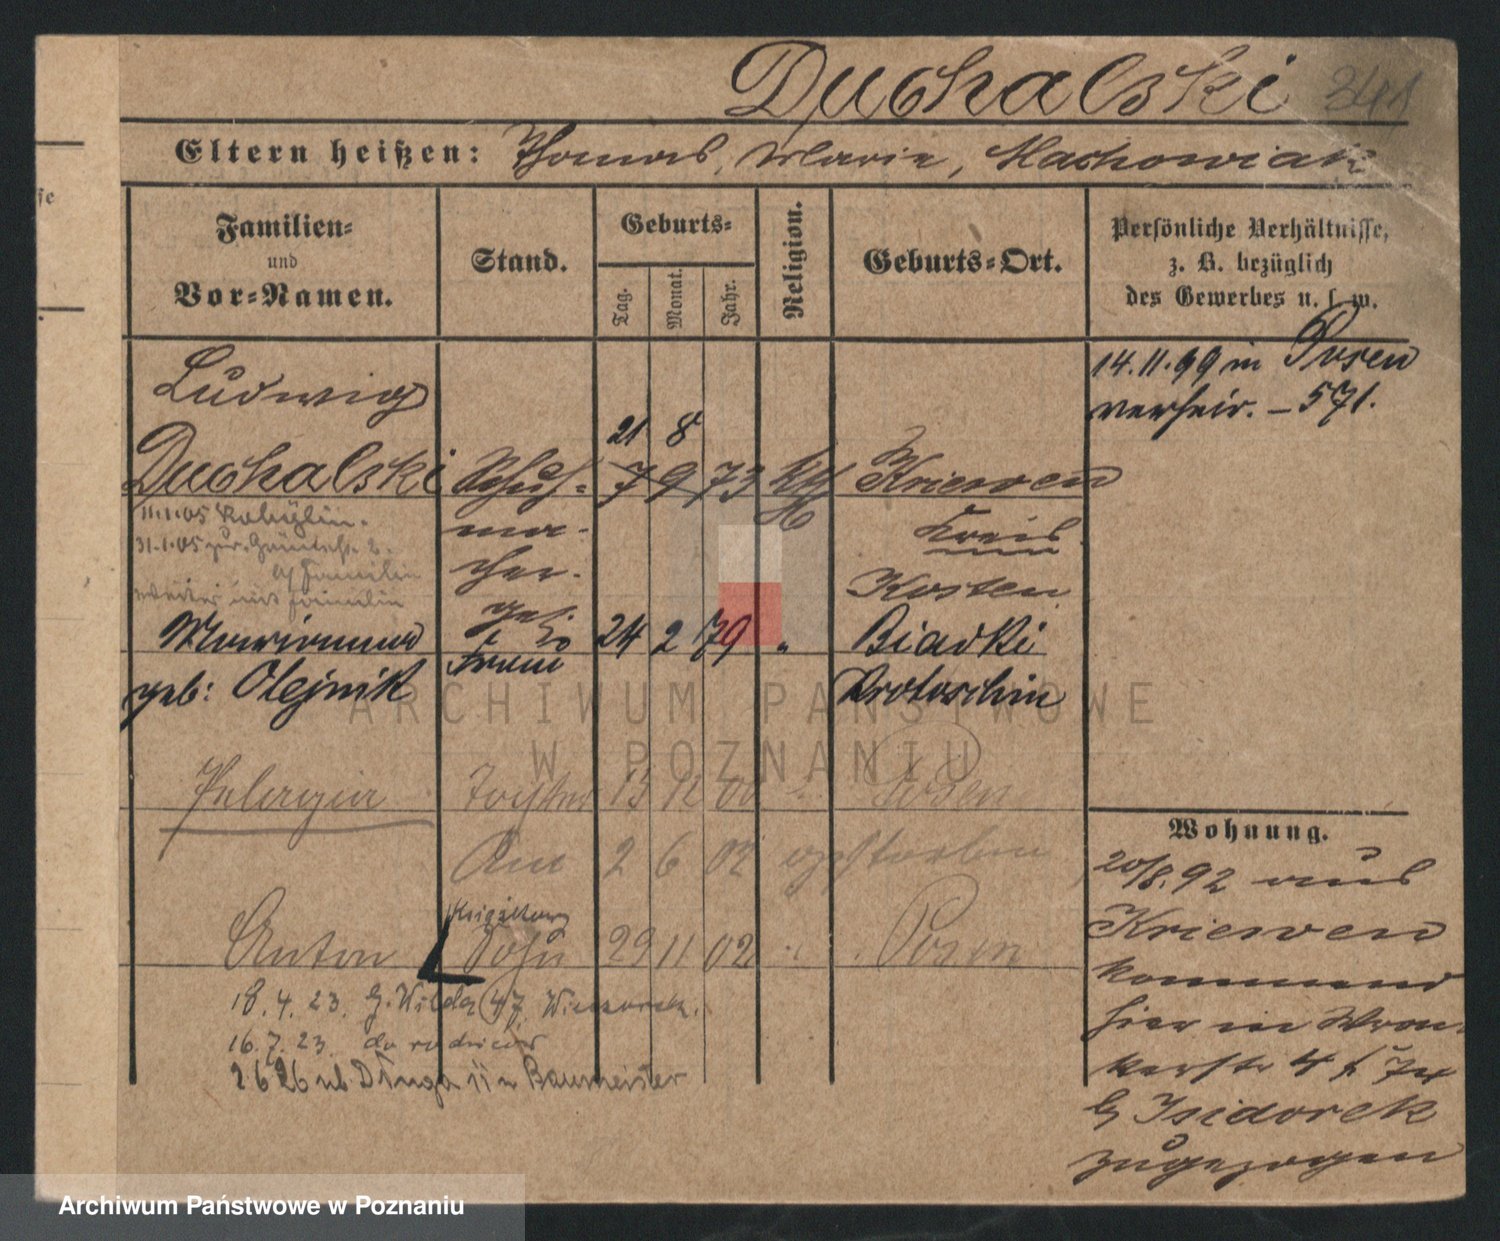 Duchalski 341
Eltern heißen: Thomas, Marie, Maćkowiak
Familien=
und
Vor=Namen.
Stand.
Geburts=
Tag.
Monat.
Jahr.
Religion.
Geburts=Ort.
Persönliche Verhältnisse,
z. B. bezüglich
des Gewerbes u. s. w.
14.11.99 in Posen
verheir. – 571.
Ludwig
21 8
Duchalski Schuh= 7 9 73 kth Kriewen
11.1.05 Kobylin.
ma-
Kreis
31.1.05 zur.
b/ Familie
cher.
Kosten
weiter mit Familie
Marianna
geb: Olejnik
Frau
24 2 79 "
Biadki
Krotoschin
Pelagia Tochter 13 12 00 Posen
Am 2 6 02 gestorben
Anton Sohn 29 11 02 Posen
18.4.23. G. Wilda 47
16.7.23. do rodziców
2 6 26 ub. Długa 11 u Baumeister
Wohnung.
20/8.92 aus
Kriewen
kommend
hier in Wron-
kerstr. 4
b/ Isidorek
zugezogen
ARCHIWUM PAŃSTWOWE
W POZNANIU
Archiwum Państwowe w Poznaniu